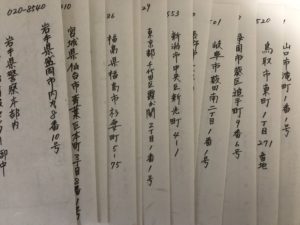 山口市滝町1番1号
520
鳥取市東町1丁目271番地
静岡市葵区追手町9番6号
岐阜市薮田南二丁目1番1号
553
新潟市中央区新光町4-1
29
東京都千代田区霞が関2丁目1番1号
26
福島県福島市杉妻町5-75
10
宮城県仙台市青葉区本町3丁目8番1号
020-8540
岩手県盛岡市内丸8番10号
岩手県警察本部内